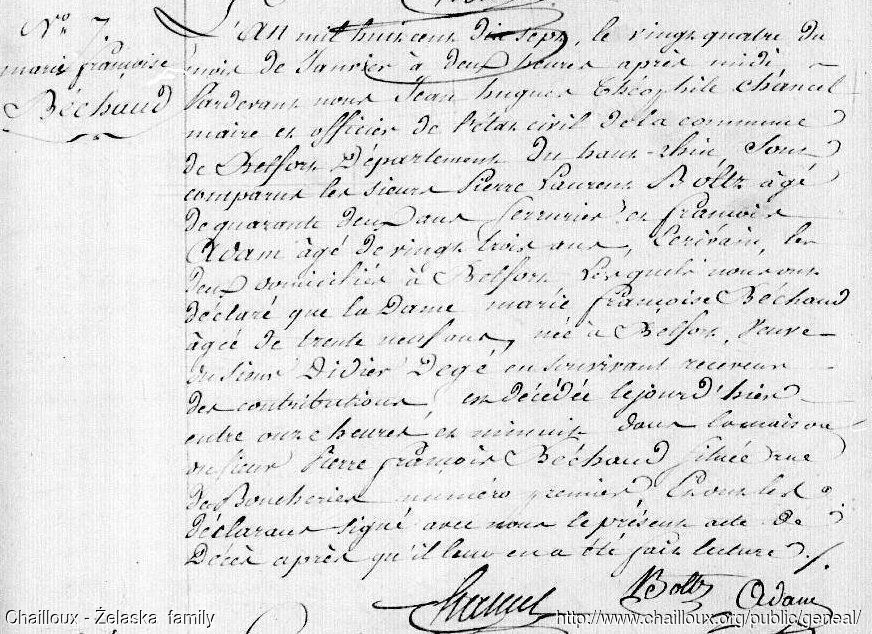 N.º 7.
marie françoise
Béchaud
L'An mil huit cent dix sept, le vingt quatre du
mois de Janvier à deux heures après midi,
Pardevant nous Jean hugues Théophile Chancel
maire et officier de l'état civil de la commune
de Belfort Département du haut-rhin, Sont
comparus les sieurs Pierre Laurent Boltz âgé
de quarante deux ans Serrurier et françois
Adam âgé de vingt trois ans, Ecrivain, les
deux domiciliés à Belfort Lesquels nous ont
déclaré que la Dame marie françoise Béchaud
âgée de trente neuf ans, née à Belfort, Veuve
du sieur Didier Degé en son vivant receveur
des contributions, est décédée le jour d'hier
entre onze heures et minuit dans la maison
du sieur Pierre françois Béchaud Située rue
des Boucheries numéro premier, Et ont les
déclarans signé avec nous le présent acte de
Décès après qu'il leur en a été fait lecture ./.
Chancel Boltz Adam
Chailloux - Żelaska family http://www.chailloux.org/public/geneal/